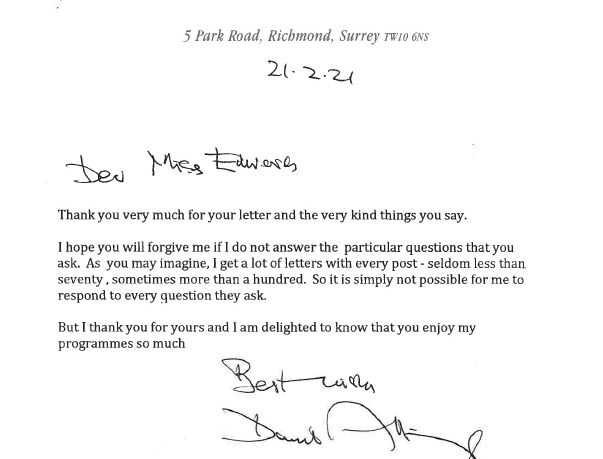 5 Park Road, Richmond, Surrey TW10 6NS
21.2.21
Dear Miss Edwards
Thank you very much for your letter and the very kind things you say.
I hope you will forgive me if I do not answer the particular questions that you
ask. As you may imagine, I get a lot of letters with every post - seldom less than
seventy , sometimes more than a hundred. So it is simply not possible for me to
respond to every question they ask.
But I thank you for yours and I am delighted to know that you enjoy my
programmes so much
Best wishes
David